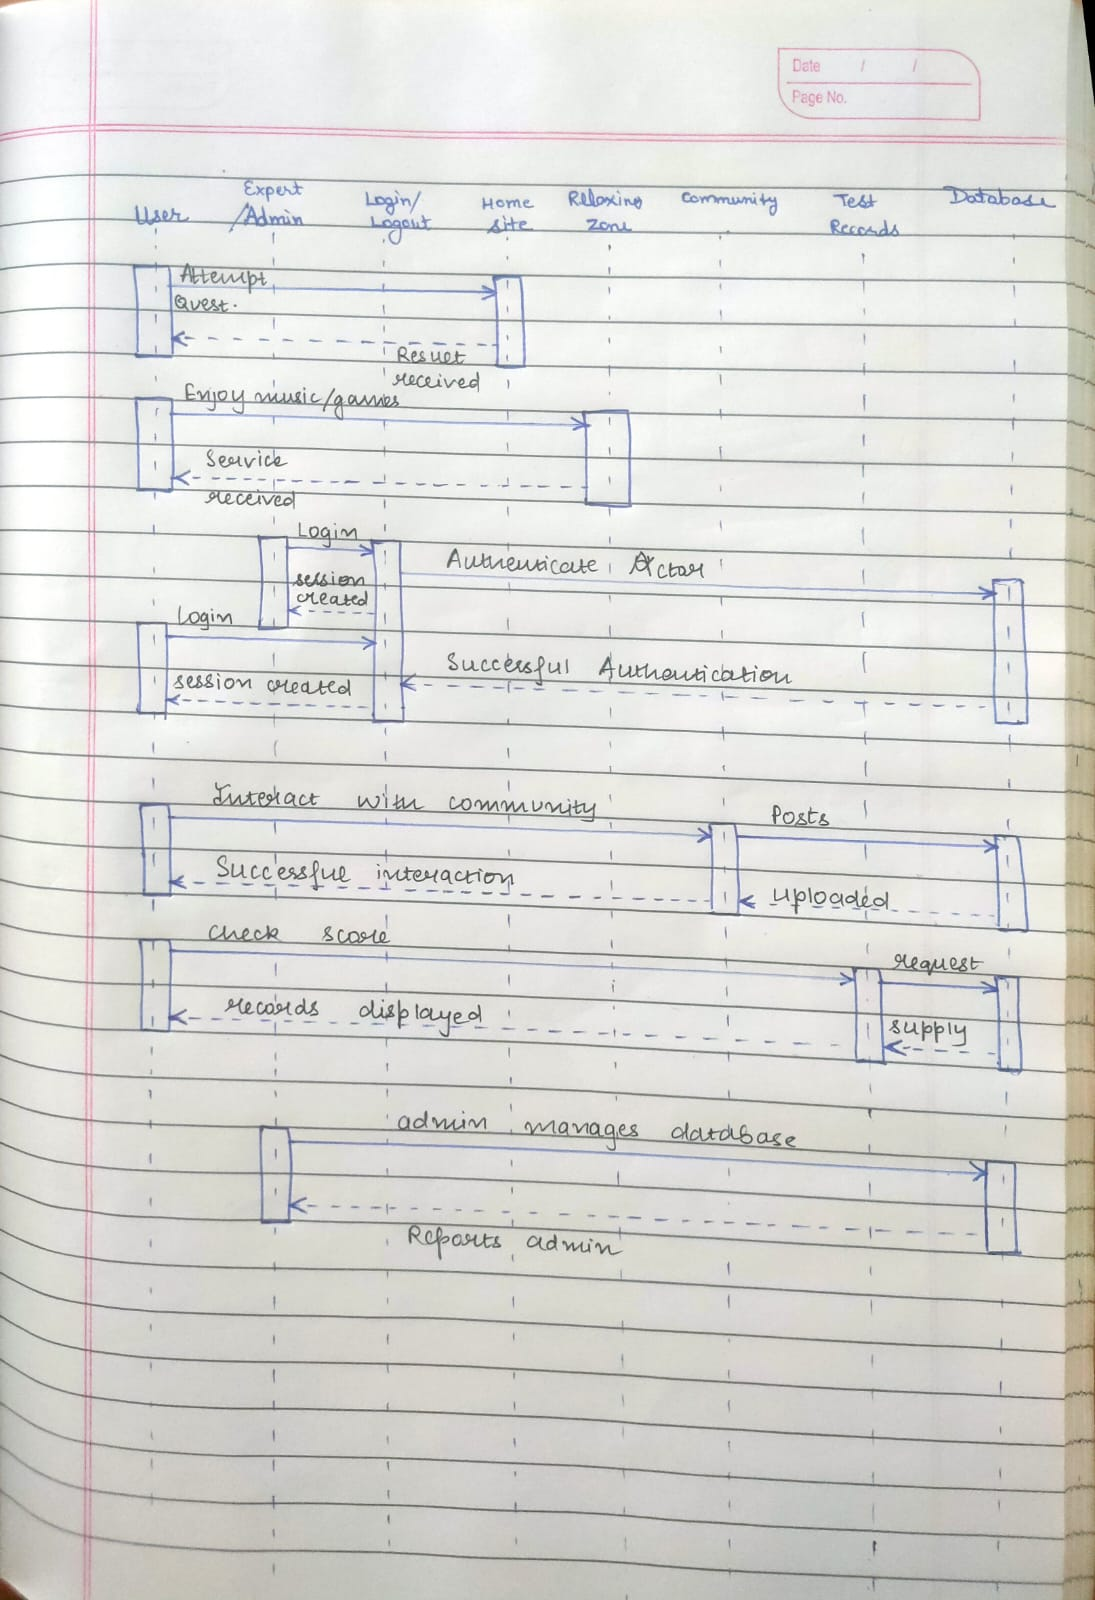 Date / /
Page No.
User
Expert
/Admin
Login/
Logout
Home
site
Relaxing
Zone
Community
Test
Records
Database
Attempt
Quest.
Result
received
Enjoy music/games
Service
received
Login
Authenticate Actor
session
created
Login
Successful Authentication
session created
Interact with community
Posts
Successful interaction
uploaded
check score
request
records displayed
supply
admin manages database
Reports admin